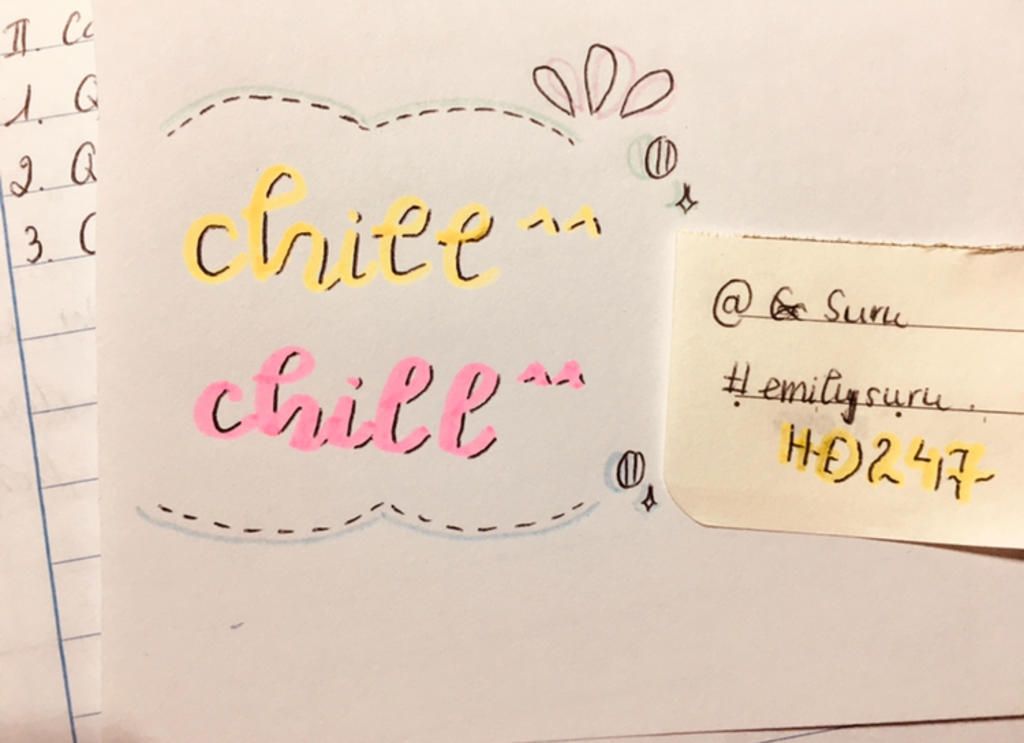 II. Co
1. Q
2. Q
3. C
chill ^^
chill ^^
@ Suru
#emilysuru.
HĐ247